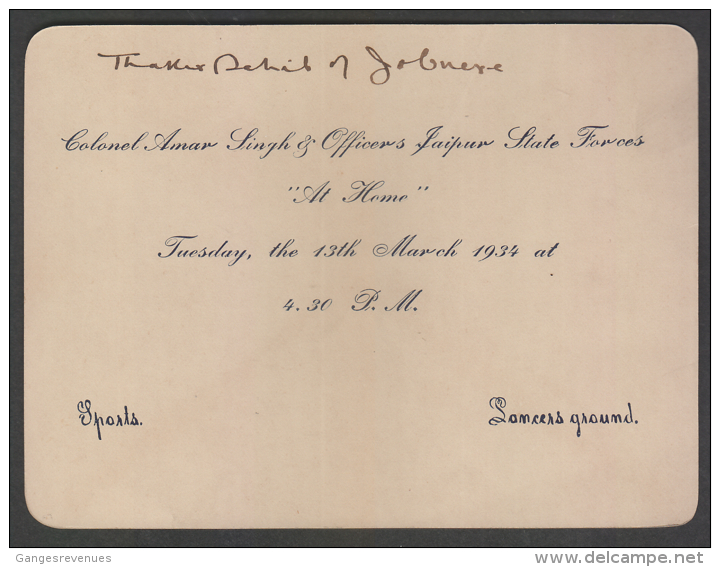 Thakur Sahib of Jobnere
Colonel Amar Singh & Officers Jaipur State Forces
"At Home"
Tuesday, the 13th March 1934 at
4.30 P.M.
Sports.
Lancers ground.
Gangesrevenues
delcampe.net